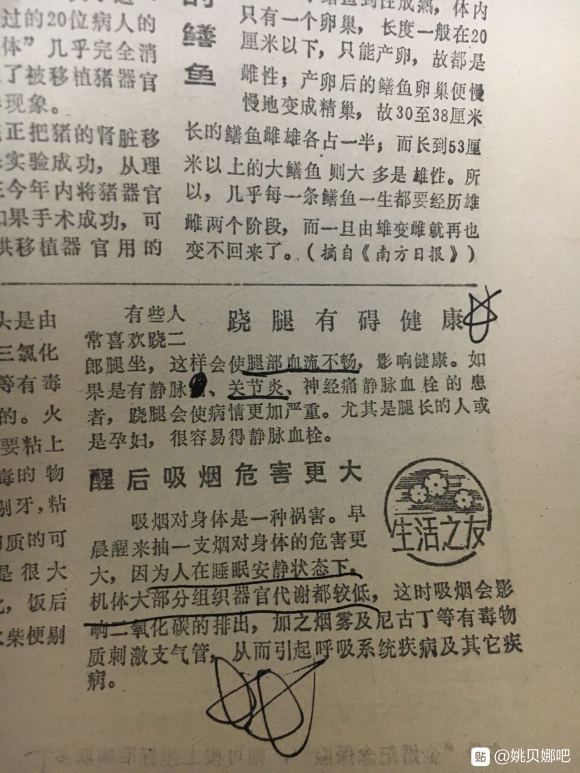 过的20位病人的
体”几乎完全消
了被移植猪器官
现象。
正把猪的肾脏移
实验成功，从理
今年内将猪器官
如果手术成功，可
供移植器官用的
鳝鱼
只有一个卵巢，长度一般在20
厘米以下，只能产卵，故都是
雌性；产卵后的鳝鱼卵巢便慢
慢地变成精巢，故30至38厘米
长的鳝鱼雌雄各占一半；而长到53厘
米以上的大鳝鱼则大多是雄性。所
以，几乎每一条鳝鱼一生都要经历雄
雌两个阶段，而一旦由雄变雌就再也
变不回来了。（摘自《南方日报》）
头是由
三氯化
等有毒
的。火
要粘上
毒的物
剔牙，粘
质的可
是很大
，饭后
火柴梗剔
跷腿有碍健康
有些人
常喜欢跷二
郎腿坐，这样会使腿部血流不畅，影响健康。如
果是有静脉、关节炎、神经痛静脉血栓的患
者，跷腿会使病情更加严重。尤其是腿长的人或
是孕妇，很容易得静脉血栓。
醒后吸烟危害更大
吸烟对身体是一种祸害。早
晨醒来抽一支烟对身体的危害更
大，因为人在睡眠安静状态下，
机体大部分组织器官代谢都较低，这时吸烟会影
响二氧化碳的排出，加之烟雾及尼古丁等有毒物
质刺激支气管，从而引起呼吸系统疾病及其它疾
病。
生活之友
贴 @姚贝娜吧